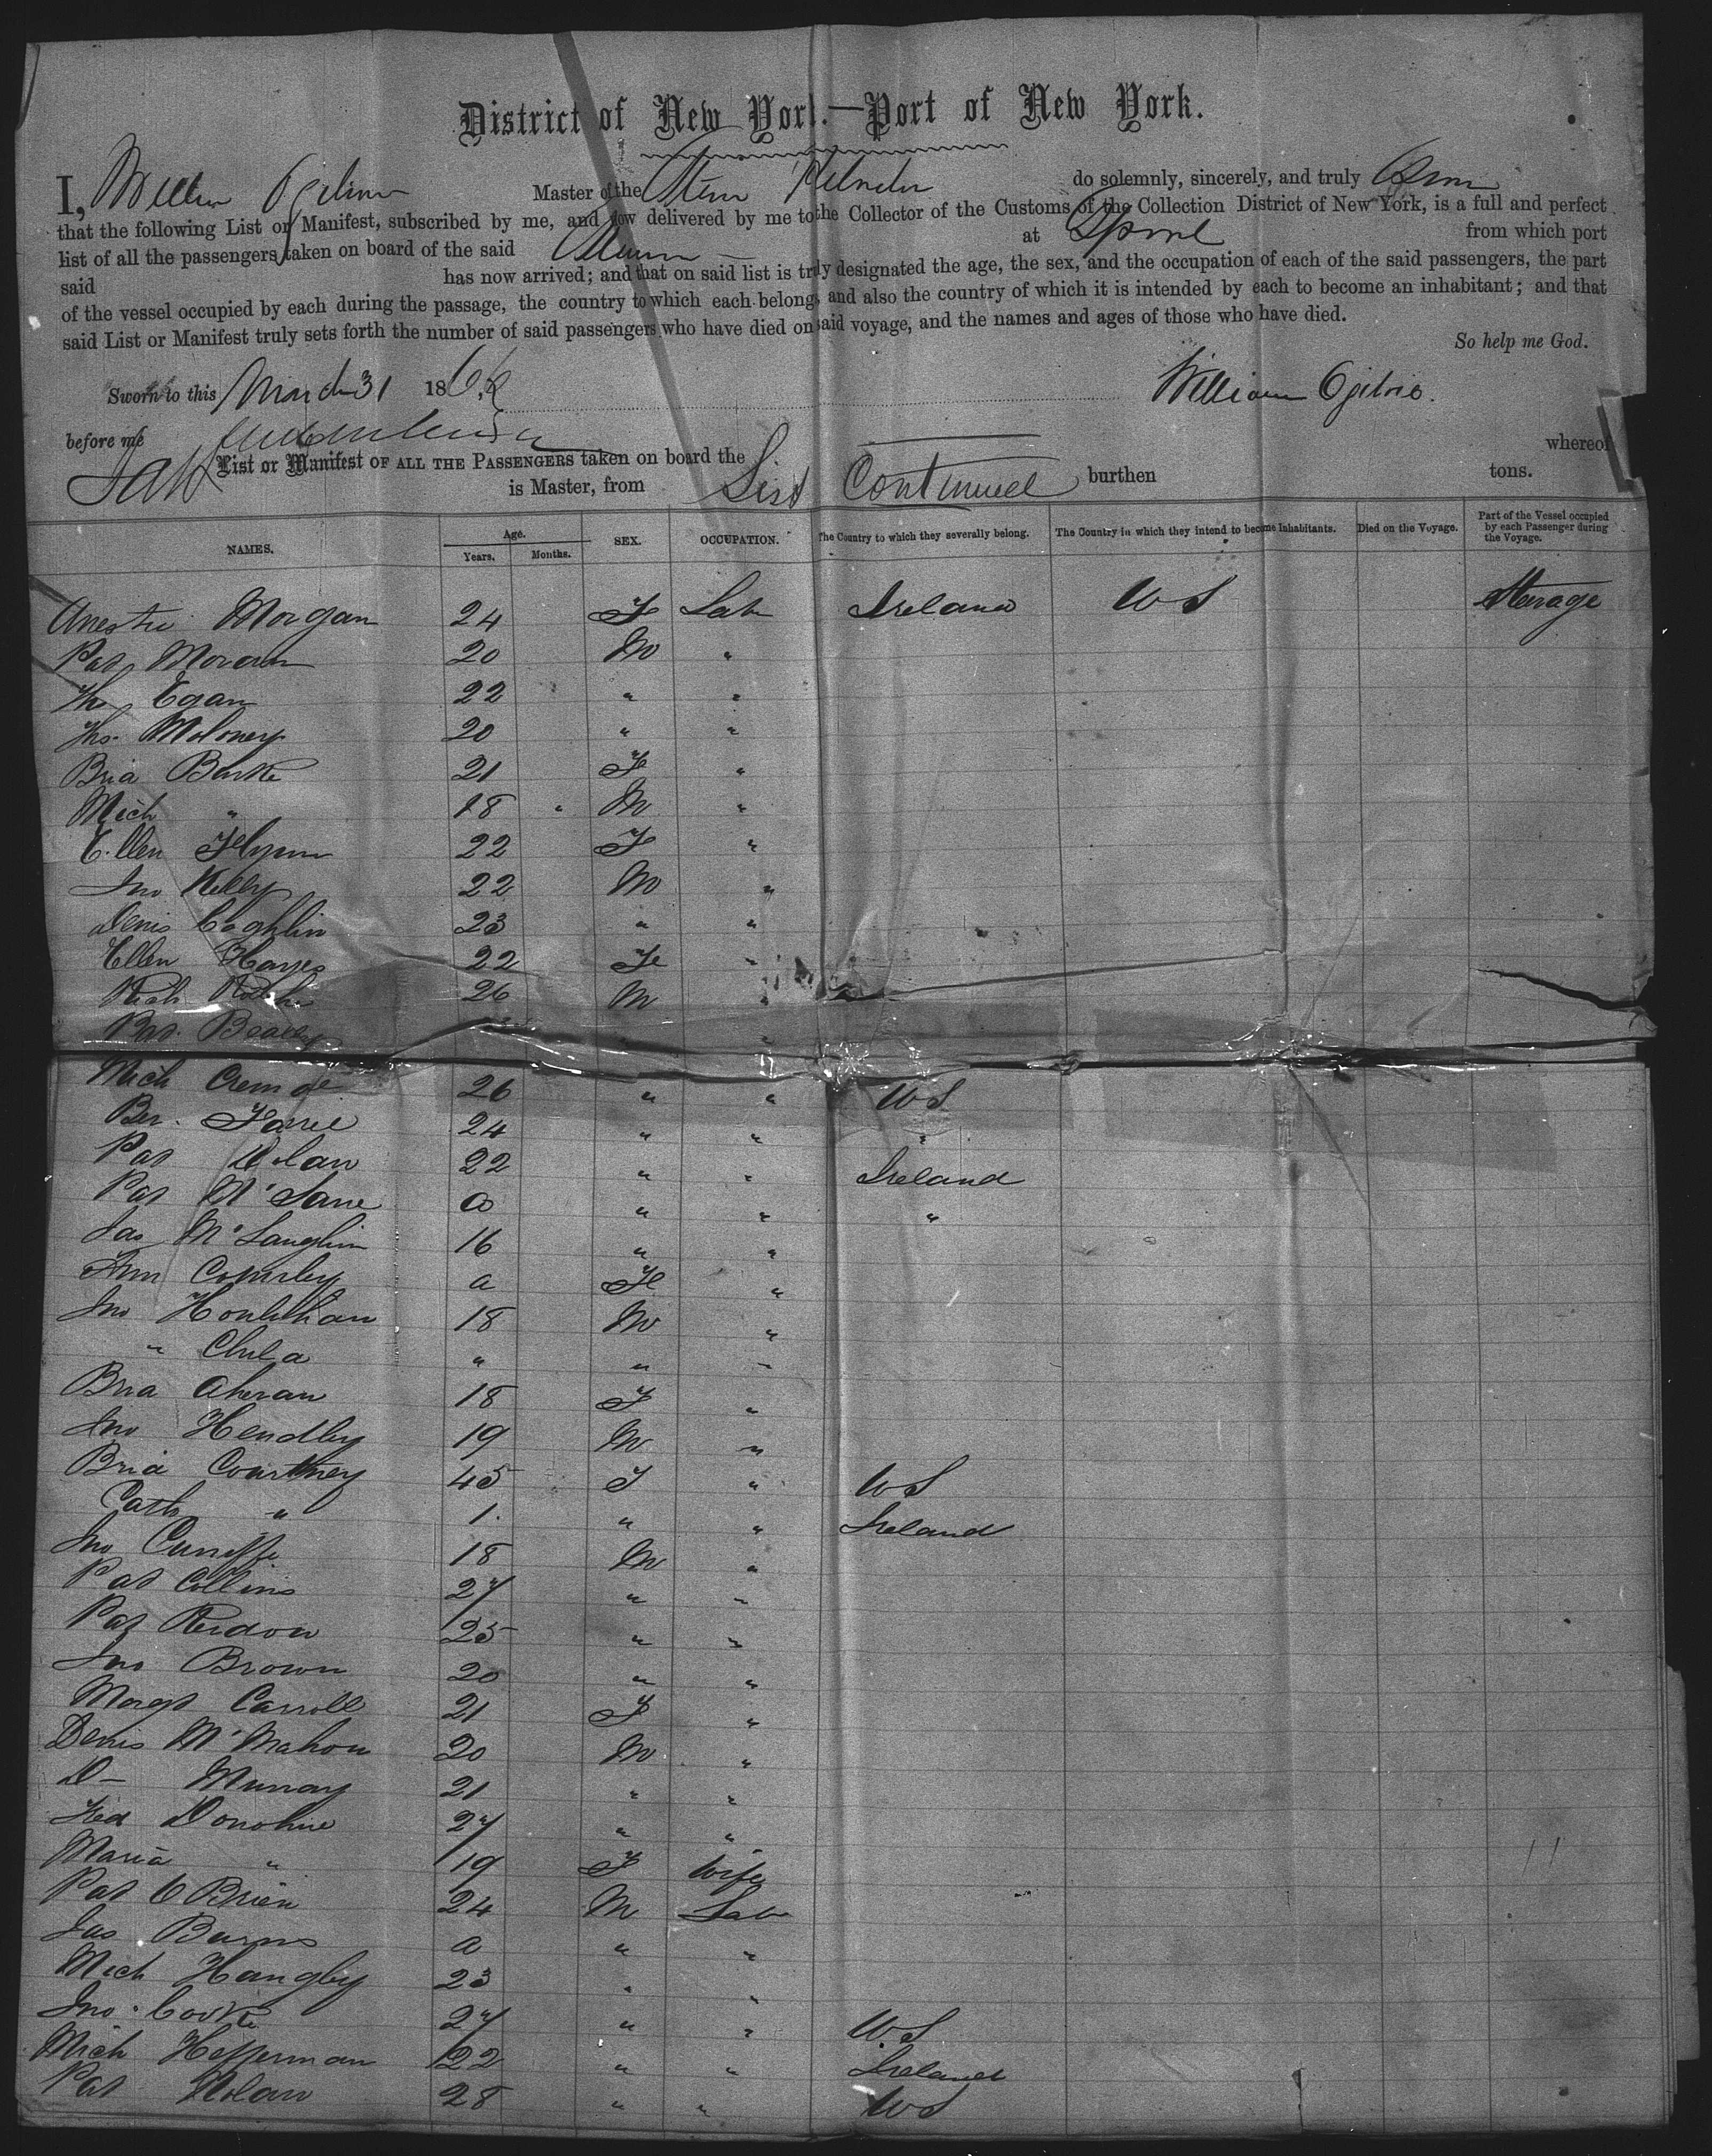 District of New York.—Port of New York.
I, Master of the do solemnly, sincerely, and truly
that the following List or Manifest, subscribed by me, and now delivered by me to the Collector of the Customs of the Collection District of New York, is a full and perfect
list of all the passengers taken on board of the said at from which port
said has now arrived; and that on said list is truly designated the age, the sex, and the occupation of each of the said passengers, the part
of the vessel occupied by each during the passage, the country to which each belongs and also the country of which it is intended by each to become an inhabitant; and that
said List or Manifest truly sets forth the number of said passengers who have died on said voyage, and the names and ages of those who have died.
So help me God.
Sworn to this March 31 1866 William Ogilvie.
before me
List or Manifest OF ALL THE PASSENGERS taken on board the whereof
is Master, from List Continued burthen tons.
NAMES. Age. Years. Months. SEX. OCCUPATION. The Country to which they severally belong. The Country in which they intend to become Inhabitants. Died on the Voyage. Part of the Vessel occupied by each Passenger during the Voyage.
Morgan 24 F Lab Ireland US Sterage
Pat Moran 20 M "
Egan 22 " "
Moloney 20 " "
Bria Burke 21 Fe "
Mich " 18 " M "
Ellen Flynn 22 F "
Jno Kelly 22 M "
Denis Coghlin 23 " "
Ellen Hayes 22 Fe "
26 M "
Mich 26 " " US
Ber. 24 " " "
Pat Dolan 22 " " Ireland
Pat a " " "
Jas McLaughlin 16 " "
Ann a Fe "
Jno Houlihan 18 M "
" " " "
Bria Aheran 18 F "
Jno Hendley 19 M "
Bria Courtney 45 F " US
Cath " 1. " " Ireland
Jno Cuniffe 18 M "
Pat Collins 27 " "
Pat Reidon 25 " "
Jno Brown 20 " "
Margt Carroll 21 F "
Denis McMahon 20 M "
D— Murray 21 " "
Donohue 27 " "
Maria " 19 F Wife
Pat O Brien 24 M Lab
Jas Burns a " "
Mich Hangley 23 " "
Jno. Cooke 27 " " US
Mich Hefferman 22 " " Ireland
Pat Nolan 28 " " US
11